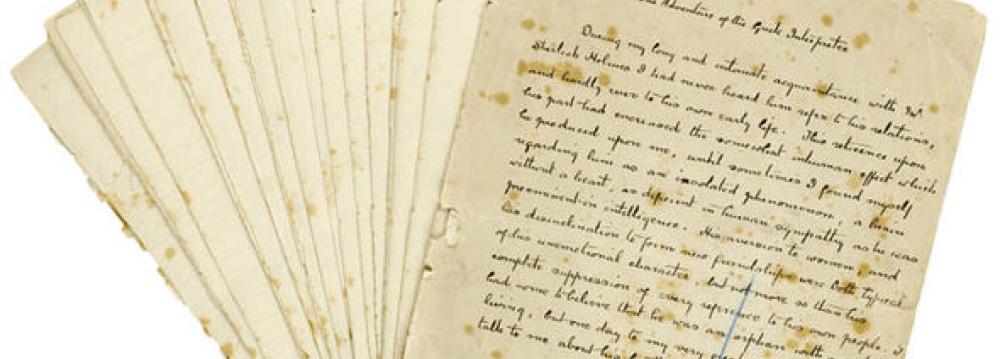 The Adventure of the Greek Interpreter
During my long and intimate acquaintance with Mr
Sherlock Holmes I had never heard him refer to his relations,
and hardly ever to his own early life. This reticence upon
his part had increased the somewhat inhuman effect which
he produced upon me, until sometimes I found myself
regarding him as an isolated phenomenon, a brain
without a heart, as deficient in human sympathy as he was
preeminent in intelligence. His aversion to women, and
his disinclination to form new friendships were both typical
of his unemotional character, but not more so than his
complete suppression of every reference to his own people. I
had come to believe that he was an orphan with
living, but one day to my very
talk to me about his